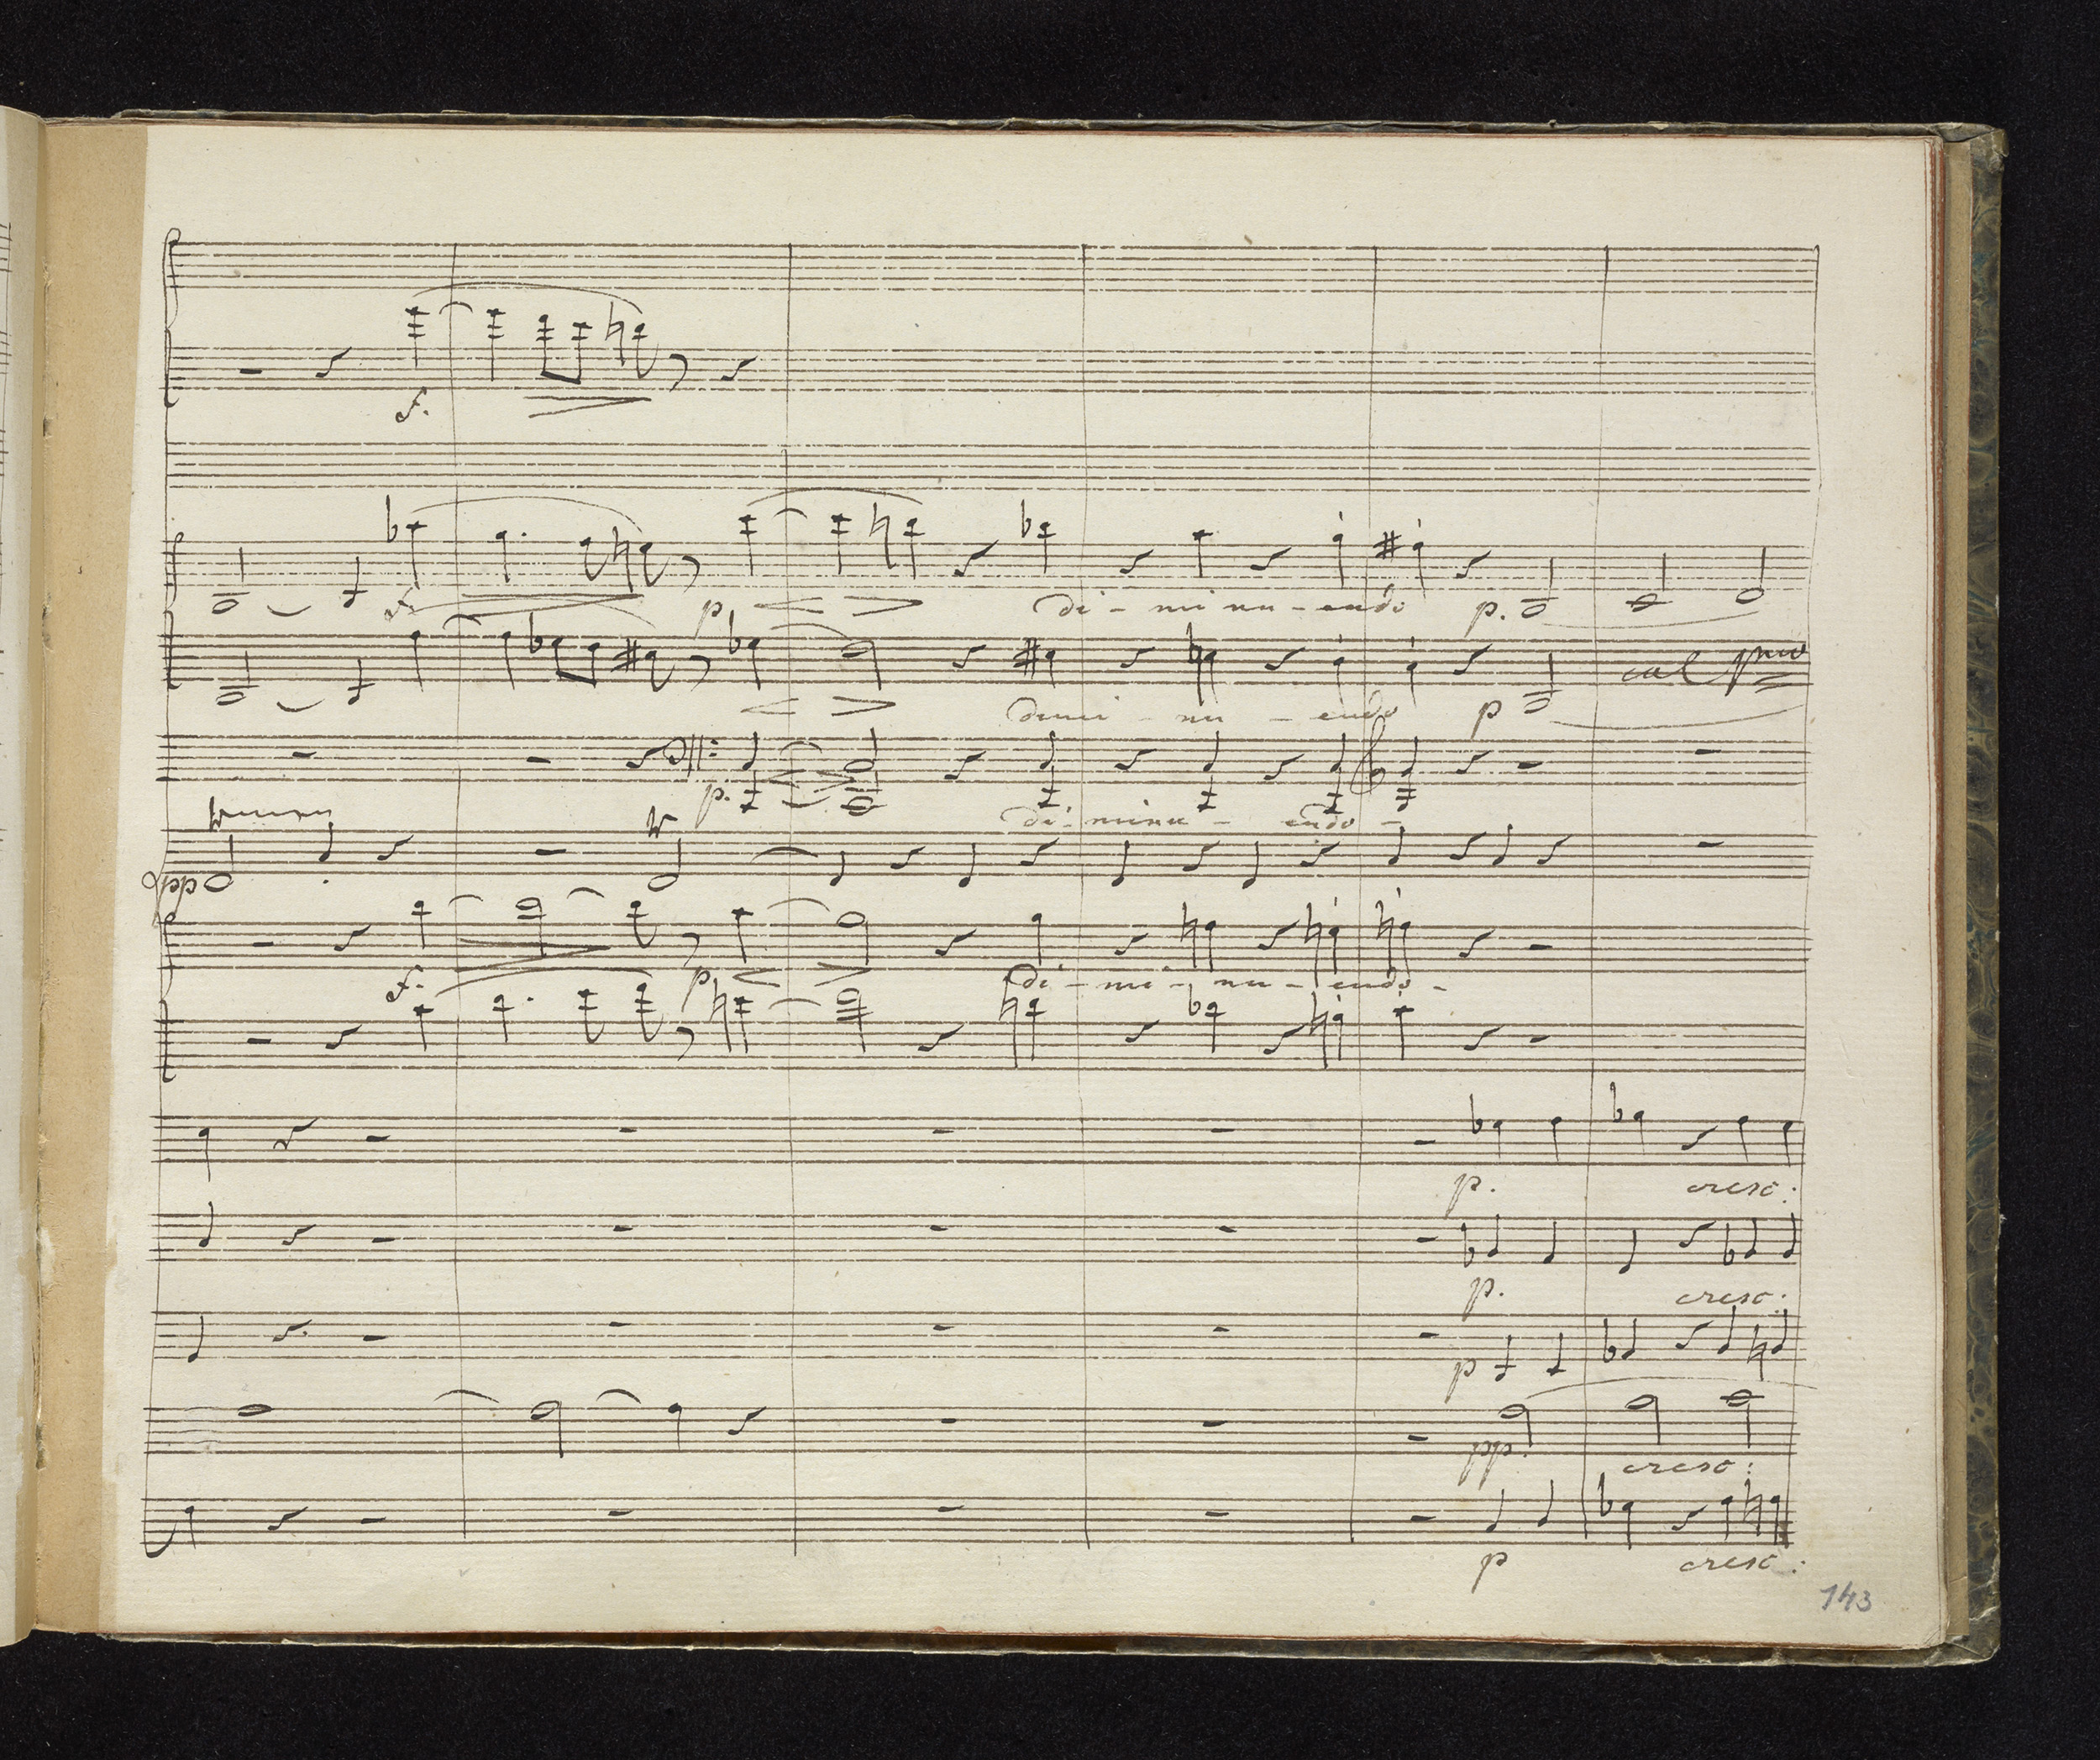 f.
f. p. di - mi nu - endo p.
dimi - nu - endo p col pmo
p. di - minu - endo -
pp
f. p. di - mi - nu - endo -
p. cresc:
p. cresc:
p
pp. cresc:
p cresc:
143